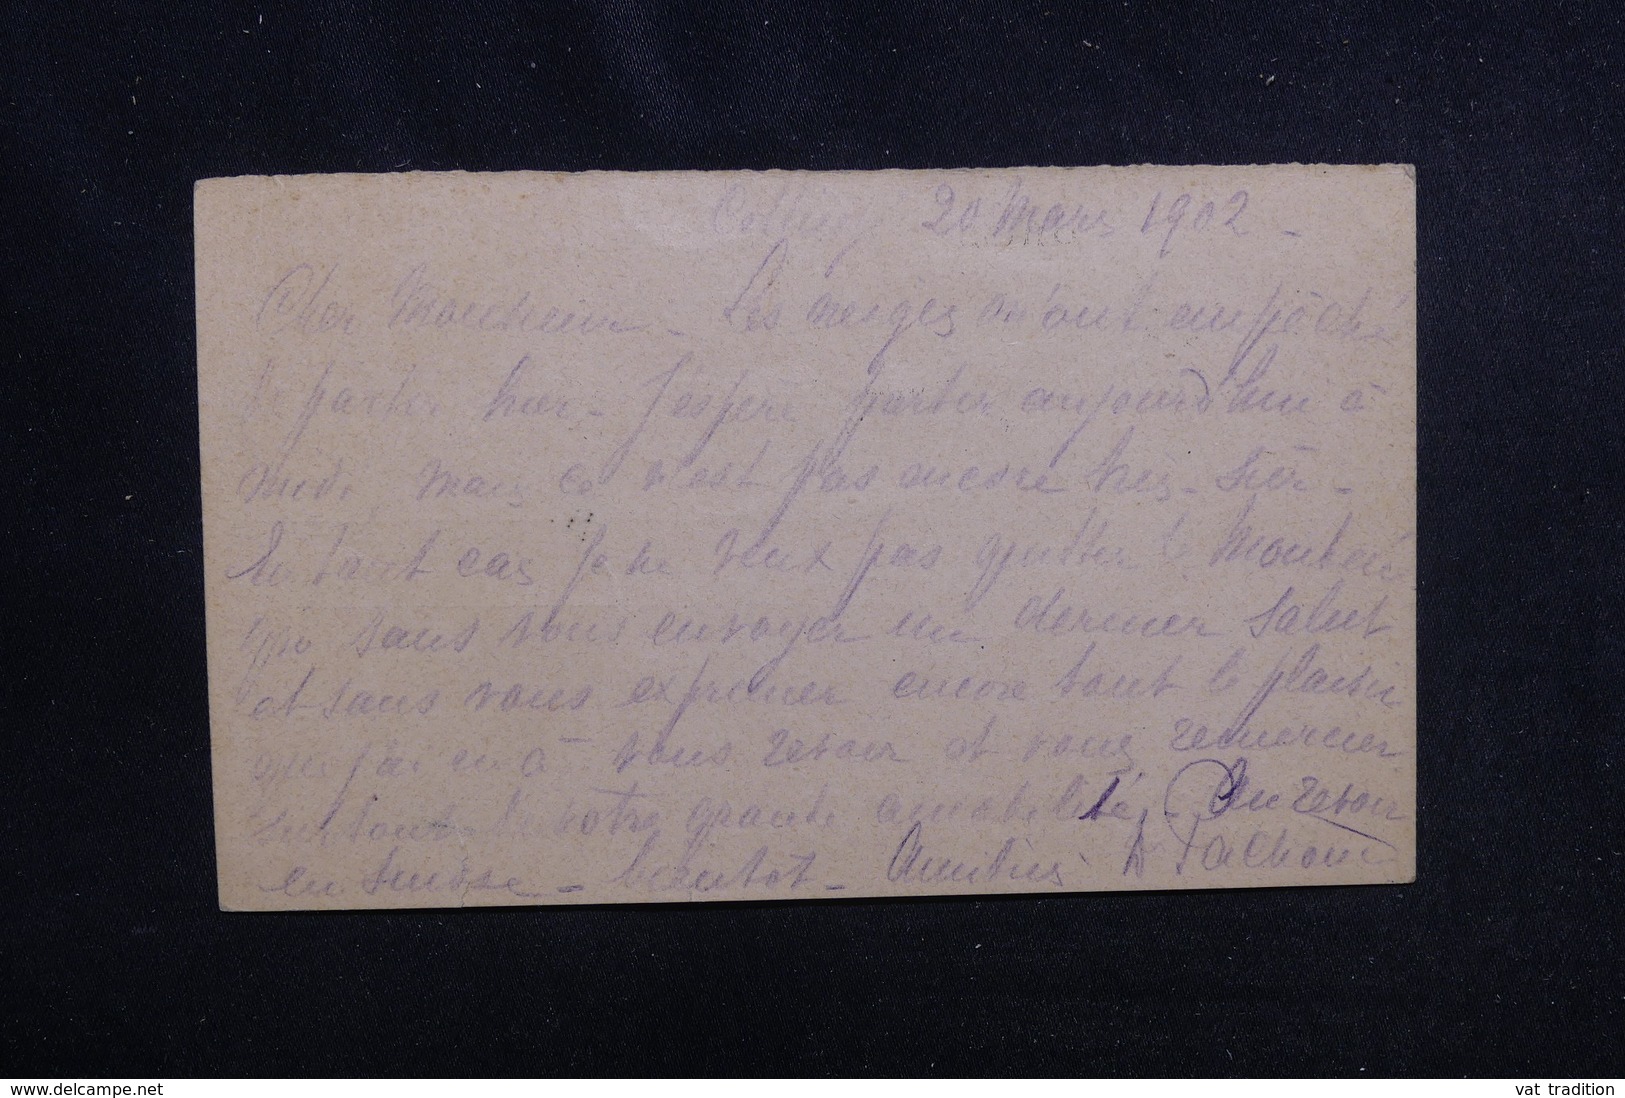 20 Mars 1902 -
Cher Monsieur - Les neiges m'ont empêché
de partir hier - J'espère partir aujourd'hui à
midi, mais ce n'est pas encore très-sûr -
En tout cas je ne veux pas quitter le Monténé
gro sans vous envoyer un dernier salut
et sans vous exprimer encore tout le plaisir
que j'ai eu à vous revoir et vous remercier
surtout de votre grande amabilité. Au revoir
en Suisse - bientôt - Amitiés
www.delcampe.net
vat tradition